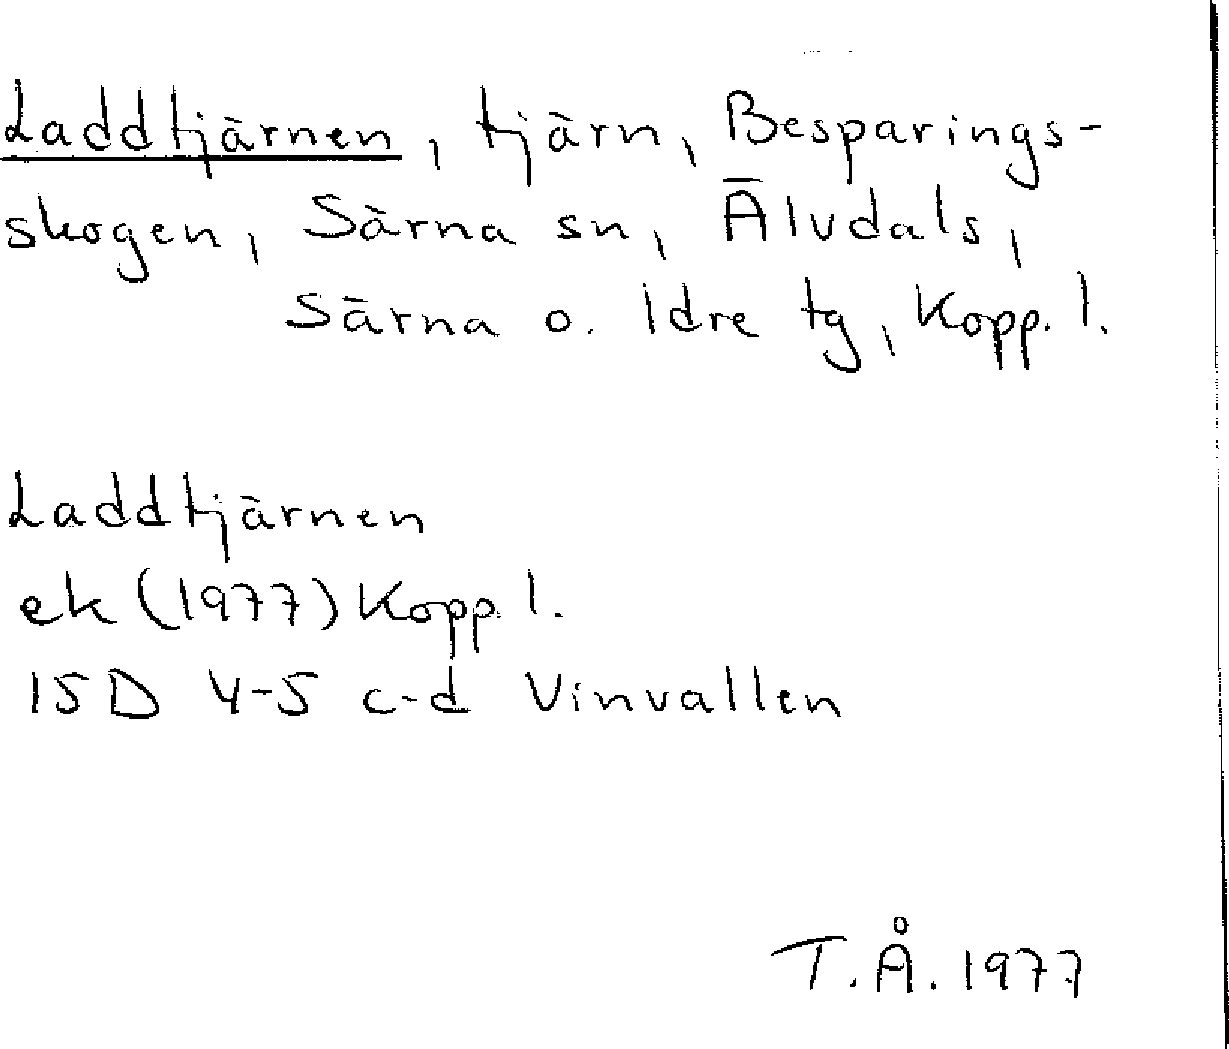 Laddtjärnen, tjärn, Besparings-
skogen, Särna sn, Älvdals,
Särna o. Idre tg, Kopp. l.
Laddtjärnen
ek (1977) Kopp. l.
15D 4-5 c-d Vinvallen
T.Å. 1977